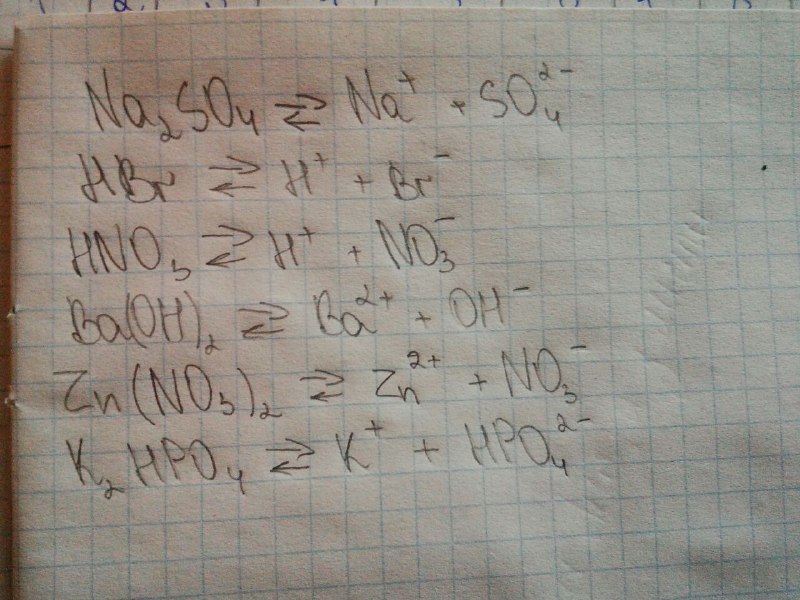 Na₂SO₄ ⇄ Na⁺ + SO₄²⁻
HBr ⇄ H⁺ + Br⁻
HNO₃ ⇄ H⁺ + NO₃⁻
Ba(OH)₂ ⇄ Ba²⁺ + OH⁻
Zn(NO₃)₂ ⇄ Zn²⁺ + NO₃⁻
K₂HPO₄ ⇄ K⁺ + HPO₄²⁻